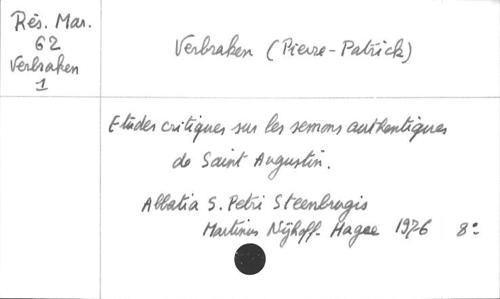 Rés. Mar.
62
Verbraken
1
Verbraken (Pierre-Patrick)
Etudes critiques sur les semons authentiques
de Saint Augustin.
Abbatia S. Petri Steenbrugis
Martinus Nijhoff - Hagae 1976 8°